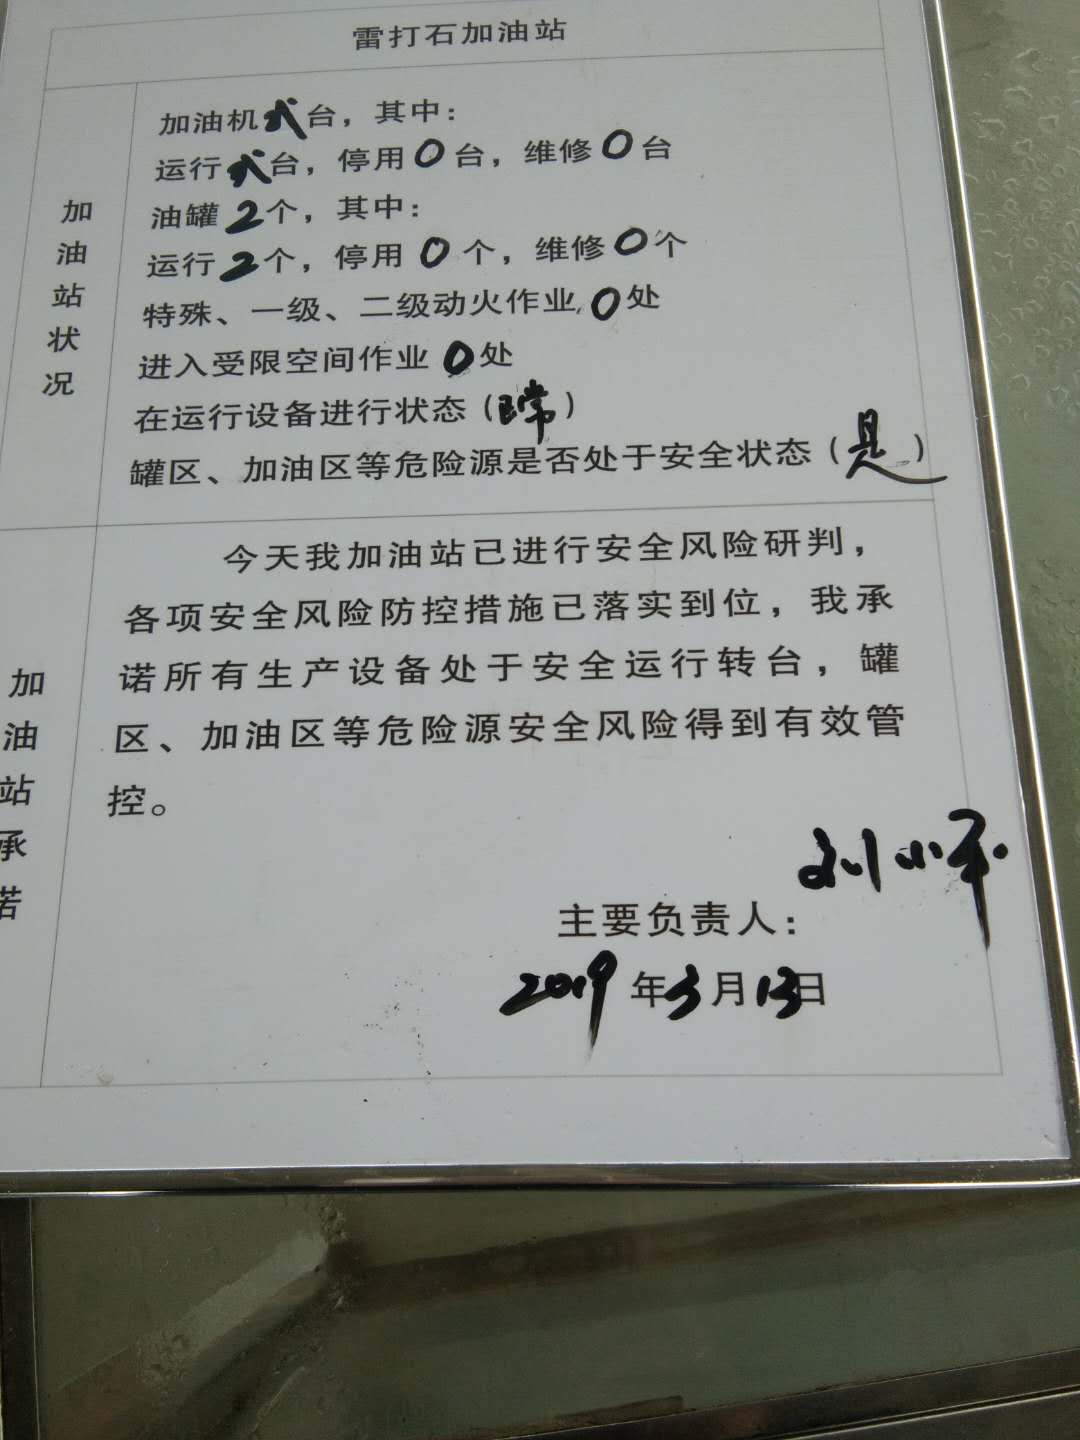 雷打石加油站
加油站状况
加油机弍台，其中：
运行弍台，停用0台，维修0台
油罐2个，其中：
运行2个，停用0个，维修0个
特殊、一级、二级动火作业0处
进入受限空间作业0处
在运行设备进行状态（正常）
罐区、加油区等危险源是否处于安全状态（是）
加油站承诺
今天我加油站已进行安全风险研判，
各项安全风险防控措施已落实到位，我承
诺所有生产设备处于安全运行转台，罐
区、加油区等危险源安全风险得到有效管
控。
刘小平
主要负责人：
2019年3月13日